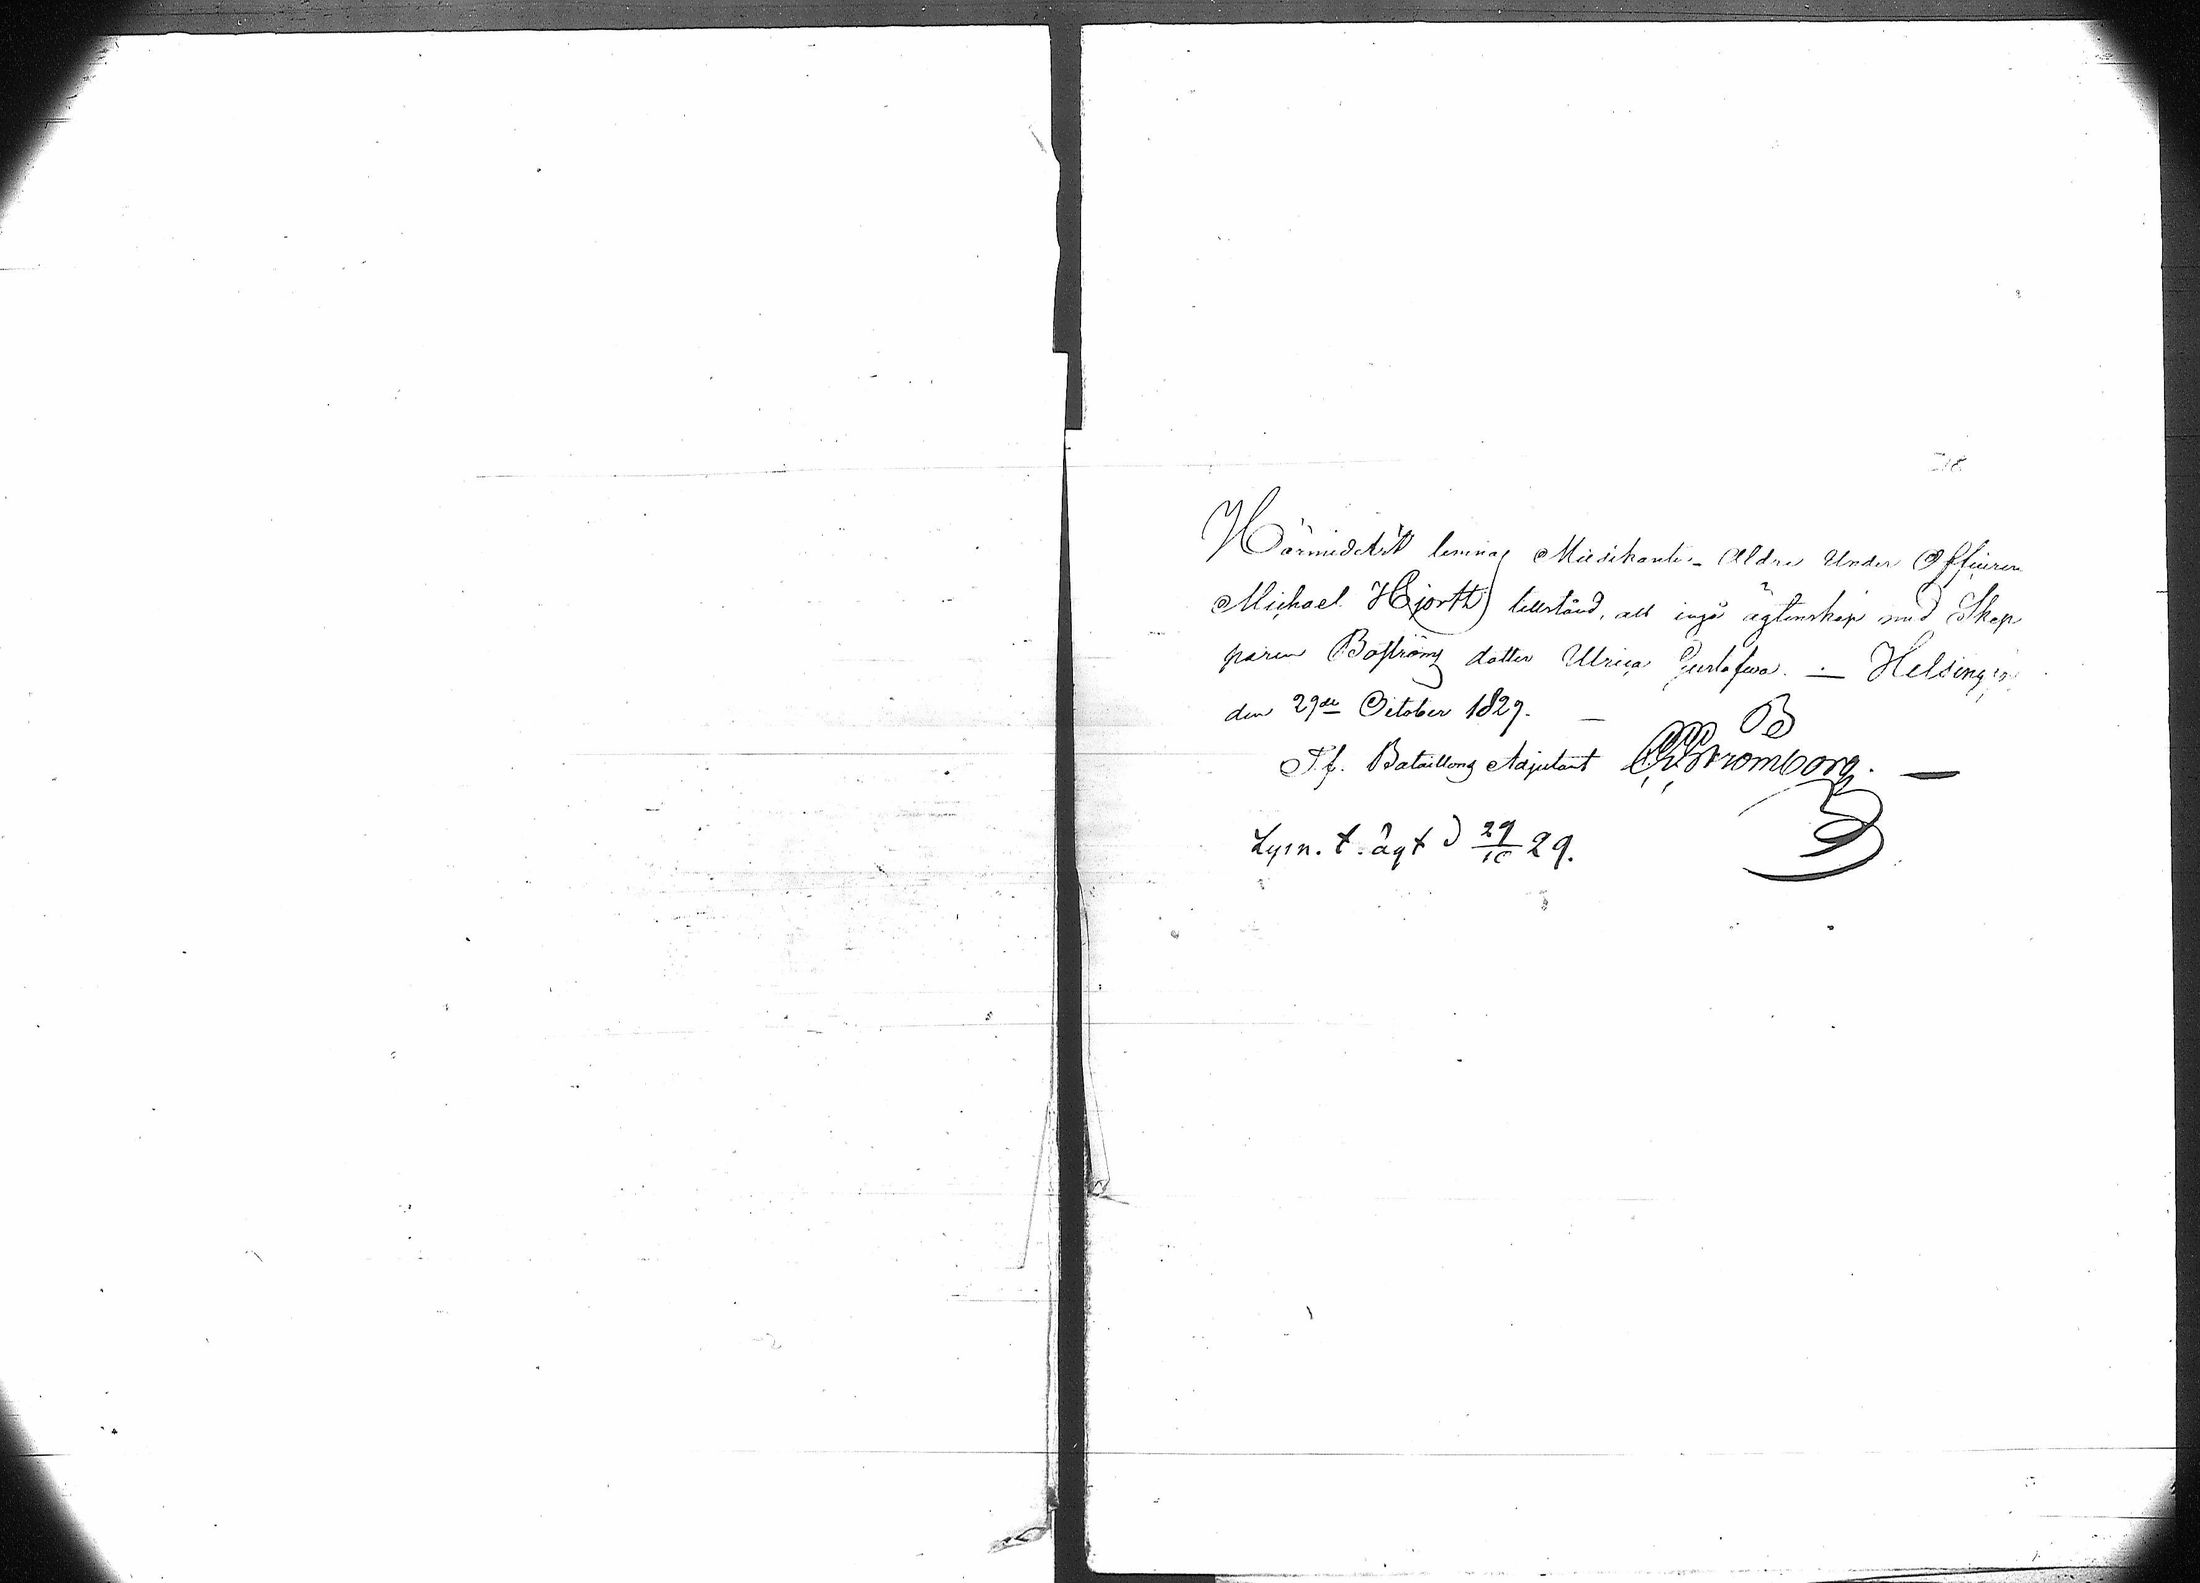 Härmedelst lemnas Musikanten Äldre Under Officeren
Michael Hjorth tillstånd, att ingå ägtenskap med Skep
paren Boströms dotter Ulrica Gustafva. — Helsingfors
den 29de October 1829. —
T.f. Bataillons Adjutant Strömborg. —
Lysn. t. ägt d 29/10 29.